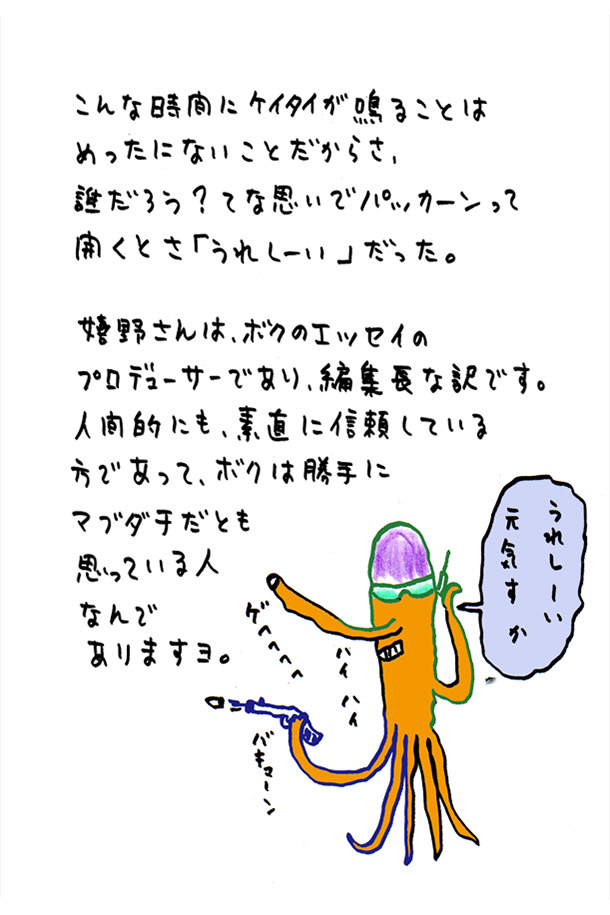 こんな時間にケイタイが鳴ることは
めったにないことだからさ、
誰だろう？てな思いでパッカーンって
開くとさ「うれしーい」だった。
嬉野さんは、ボクのエッセイの
プロデューサーであり、編集長な訳です。
人間的にも、素直に信頼している
方であって、ボクは勝手に
マブダチだとも
思っている人
なんで
ありますヨ。
うれしーい
元気すか
ゲヘヘヘヘ
ハイ ハイ
バキューン